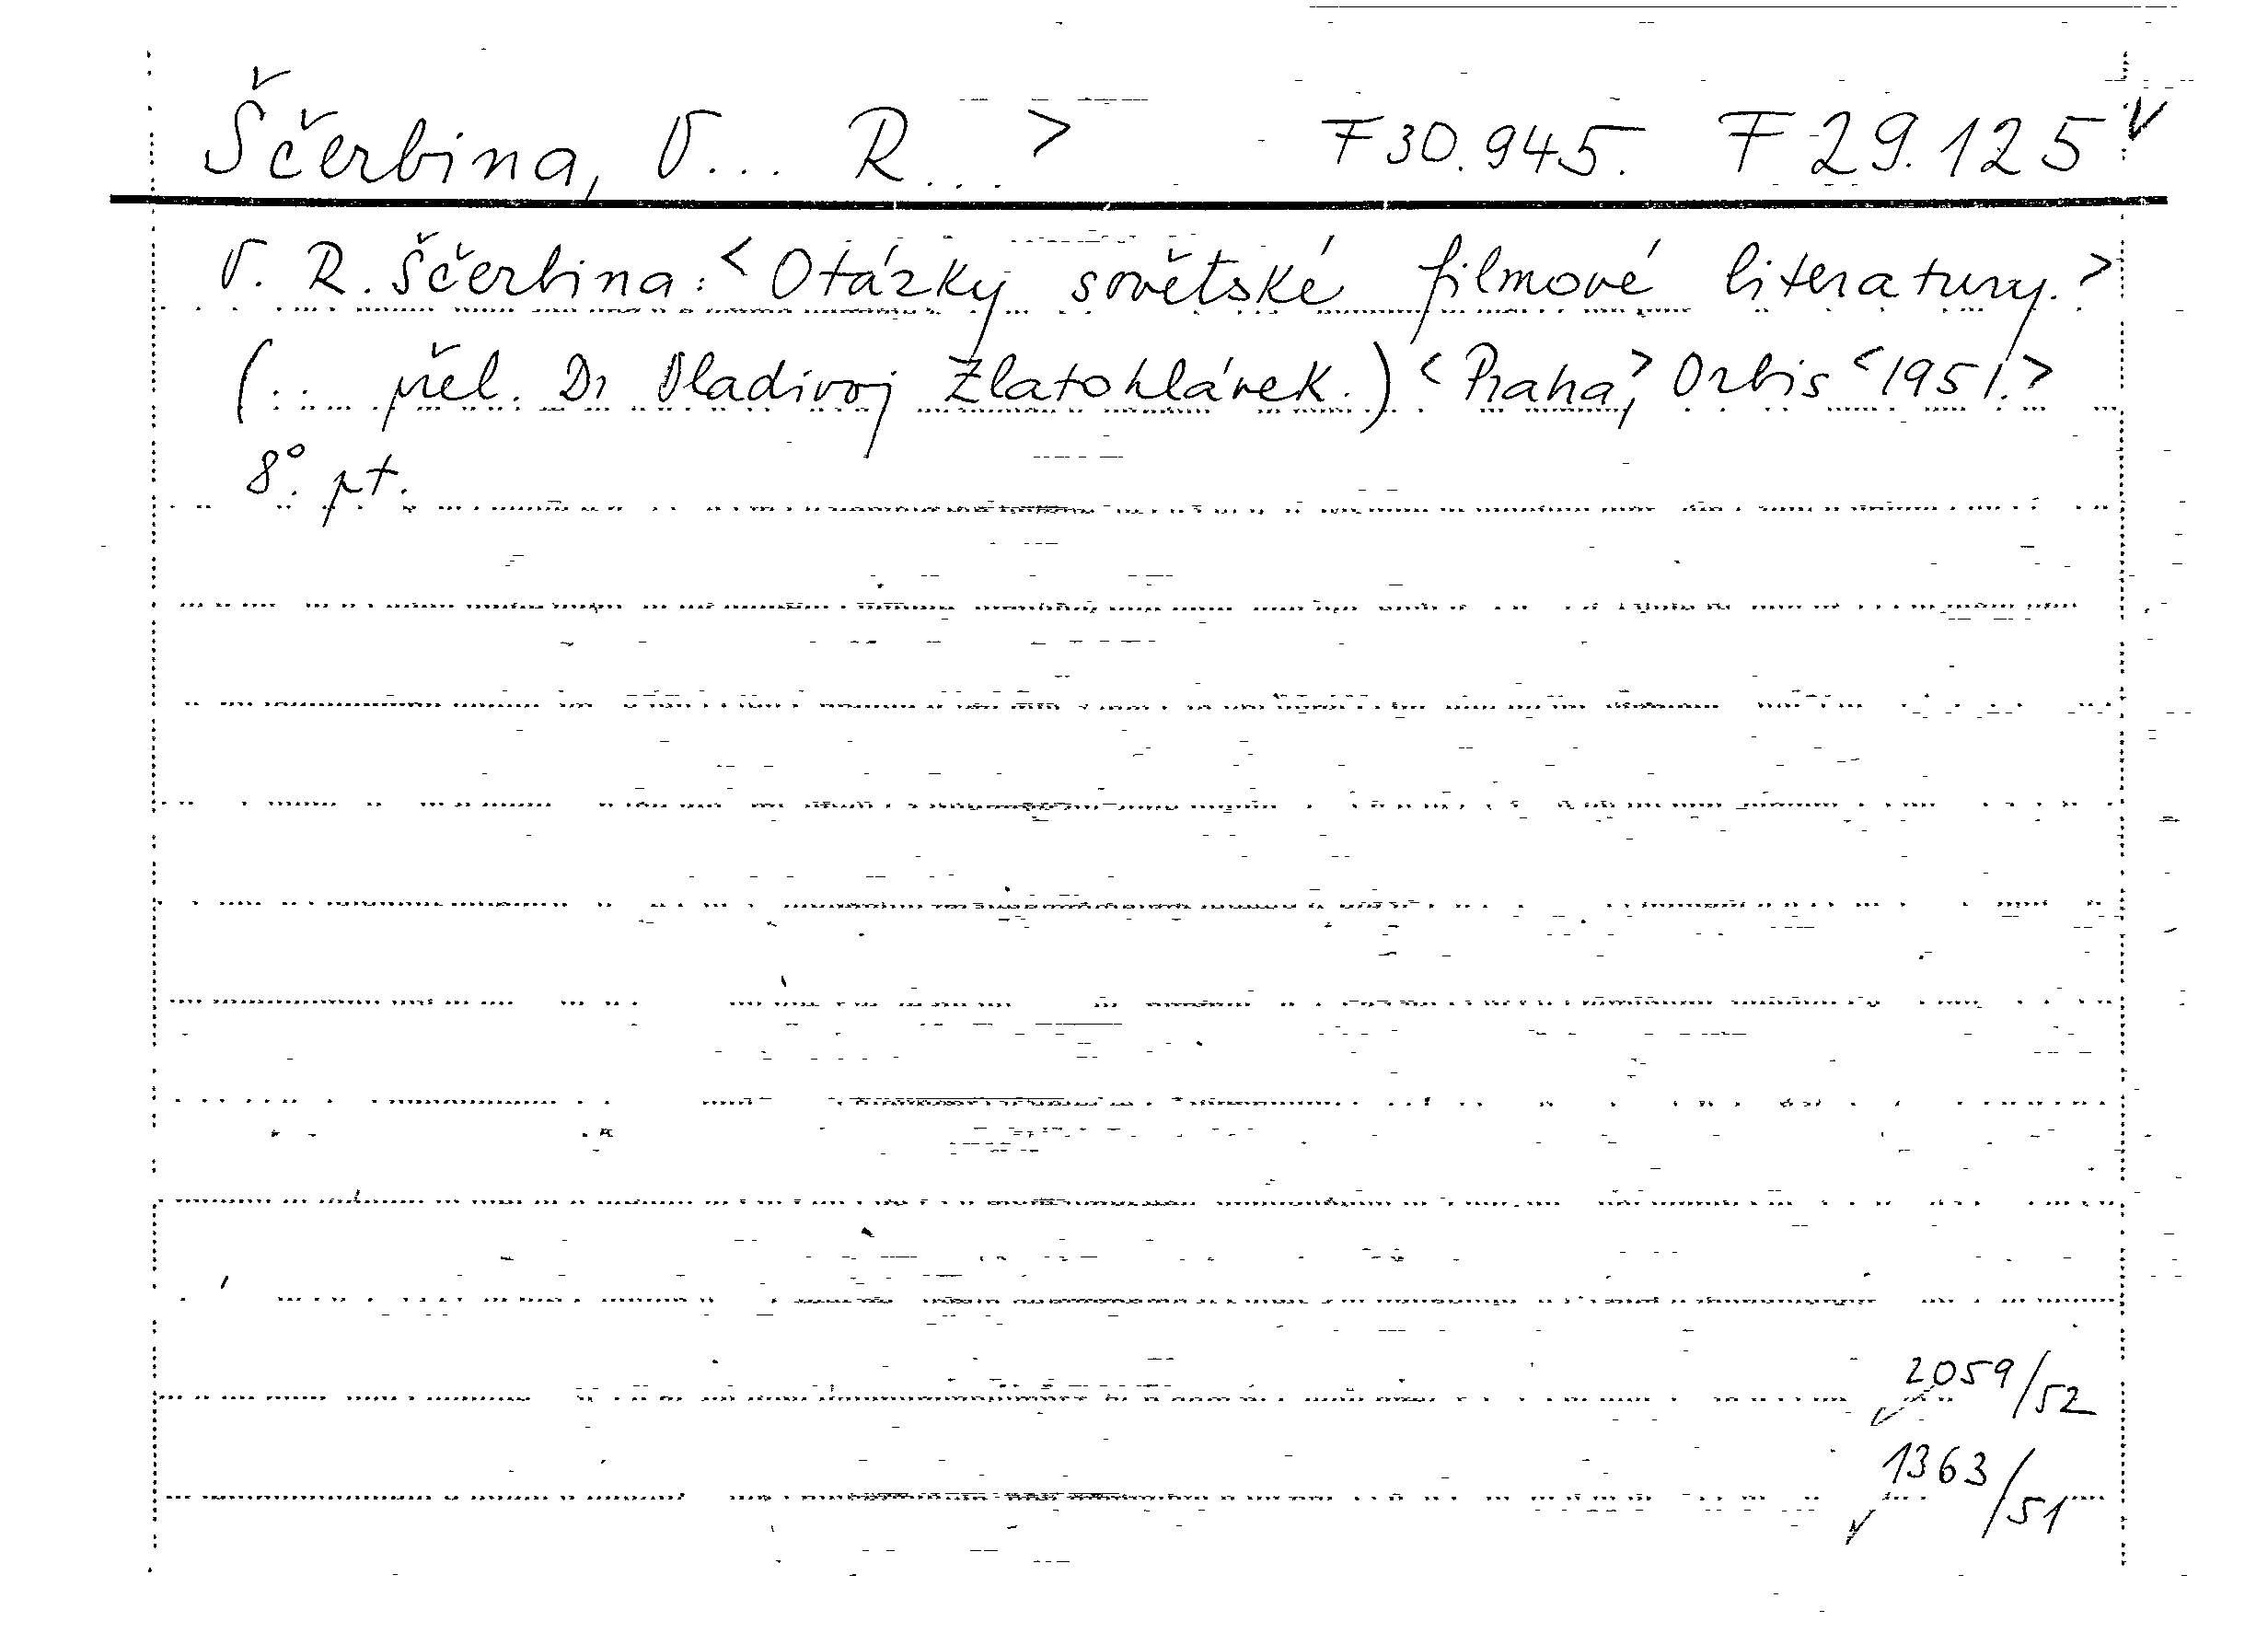 Ščerbina, V... R...> F 30.945. F 29.125
V. R. Ščerbina: <Otázky sovětské filmové literatury.>
(... přel. Dr Vladivoj Zlatohlávek.) <Praha,> Orbis <1951.>
8°. pt.
2059/52
1363/51